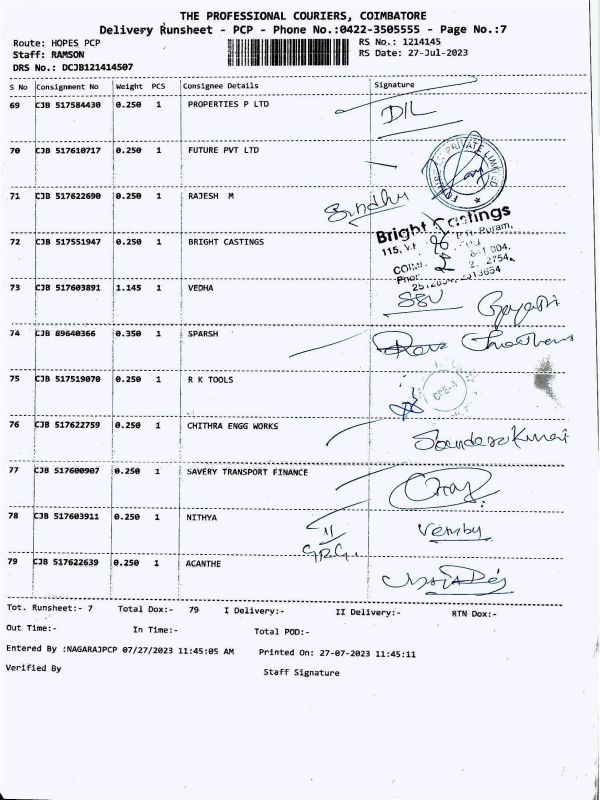 THE PROFESSIONAL COURIERS, COIMBATORE
Delivery Runsheet - PCP - Phone No.:0422-3505555 - Page No.:7
Route: HOPES PCP
RS No.: 1214145
Staff: RAMSON
RS Date: 27-Jul-2023
DRS No.: DCJB121414507
S No Consignment No Weight PCS Consignee Details Signature
69 CJB 517584430 0.250 1 PROPERTIES P LTD DIL
70 CJB 517610717 0.250 1 FUTURE PVT LTD
PRIVATE LIMITED
71 CJB 517622690 0.250 1 RAJESH M Sindhu
72 CJB 517551947 0.250 1 BRIGHT CASTINGS
Bright Castings
115,
73 CJB 517603891 1.145 1 VEDHA
SSV Gayatri
74 CJB 89640366 0.350 1 SPARSH
75 CJB 517519070 0.250 1 R K TOOLS
76 CJB 517622759 0.250 1 CHITHRA ENGG WORKS
77 CJB 517600907 0.250 1 SAVERY TRANSPORT FINANCE
78 CJB 517603911 0.250 1 NITHYA
GRG.
79 CJB 517622639 0.250 1 ACANTHE
Tot. Runsheet:- 7 Total Dox:- 79 I Delivery:- II Delivery:- RTN Dox:-
Out Time:- In Time:- Total POD:-
Entered By :NAGARAJPCP 07/27/2023 11:45:05 AM Printed On: 27-07-2023 11:45:11
Verified By Staff Signature